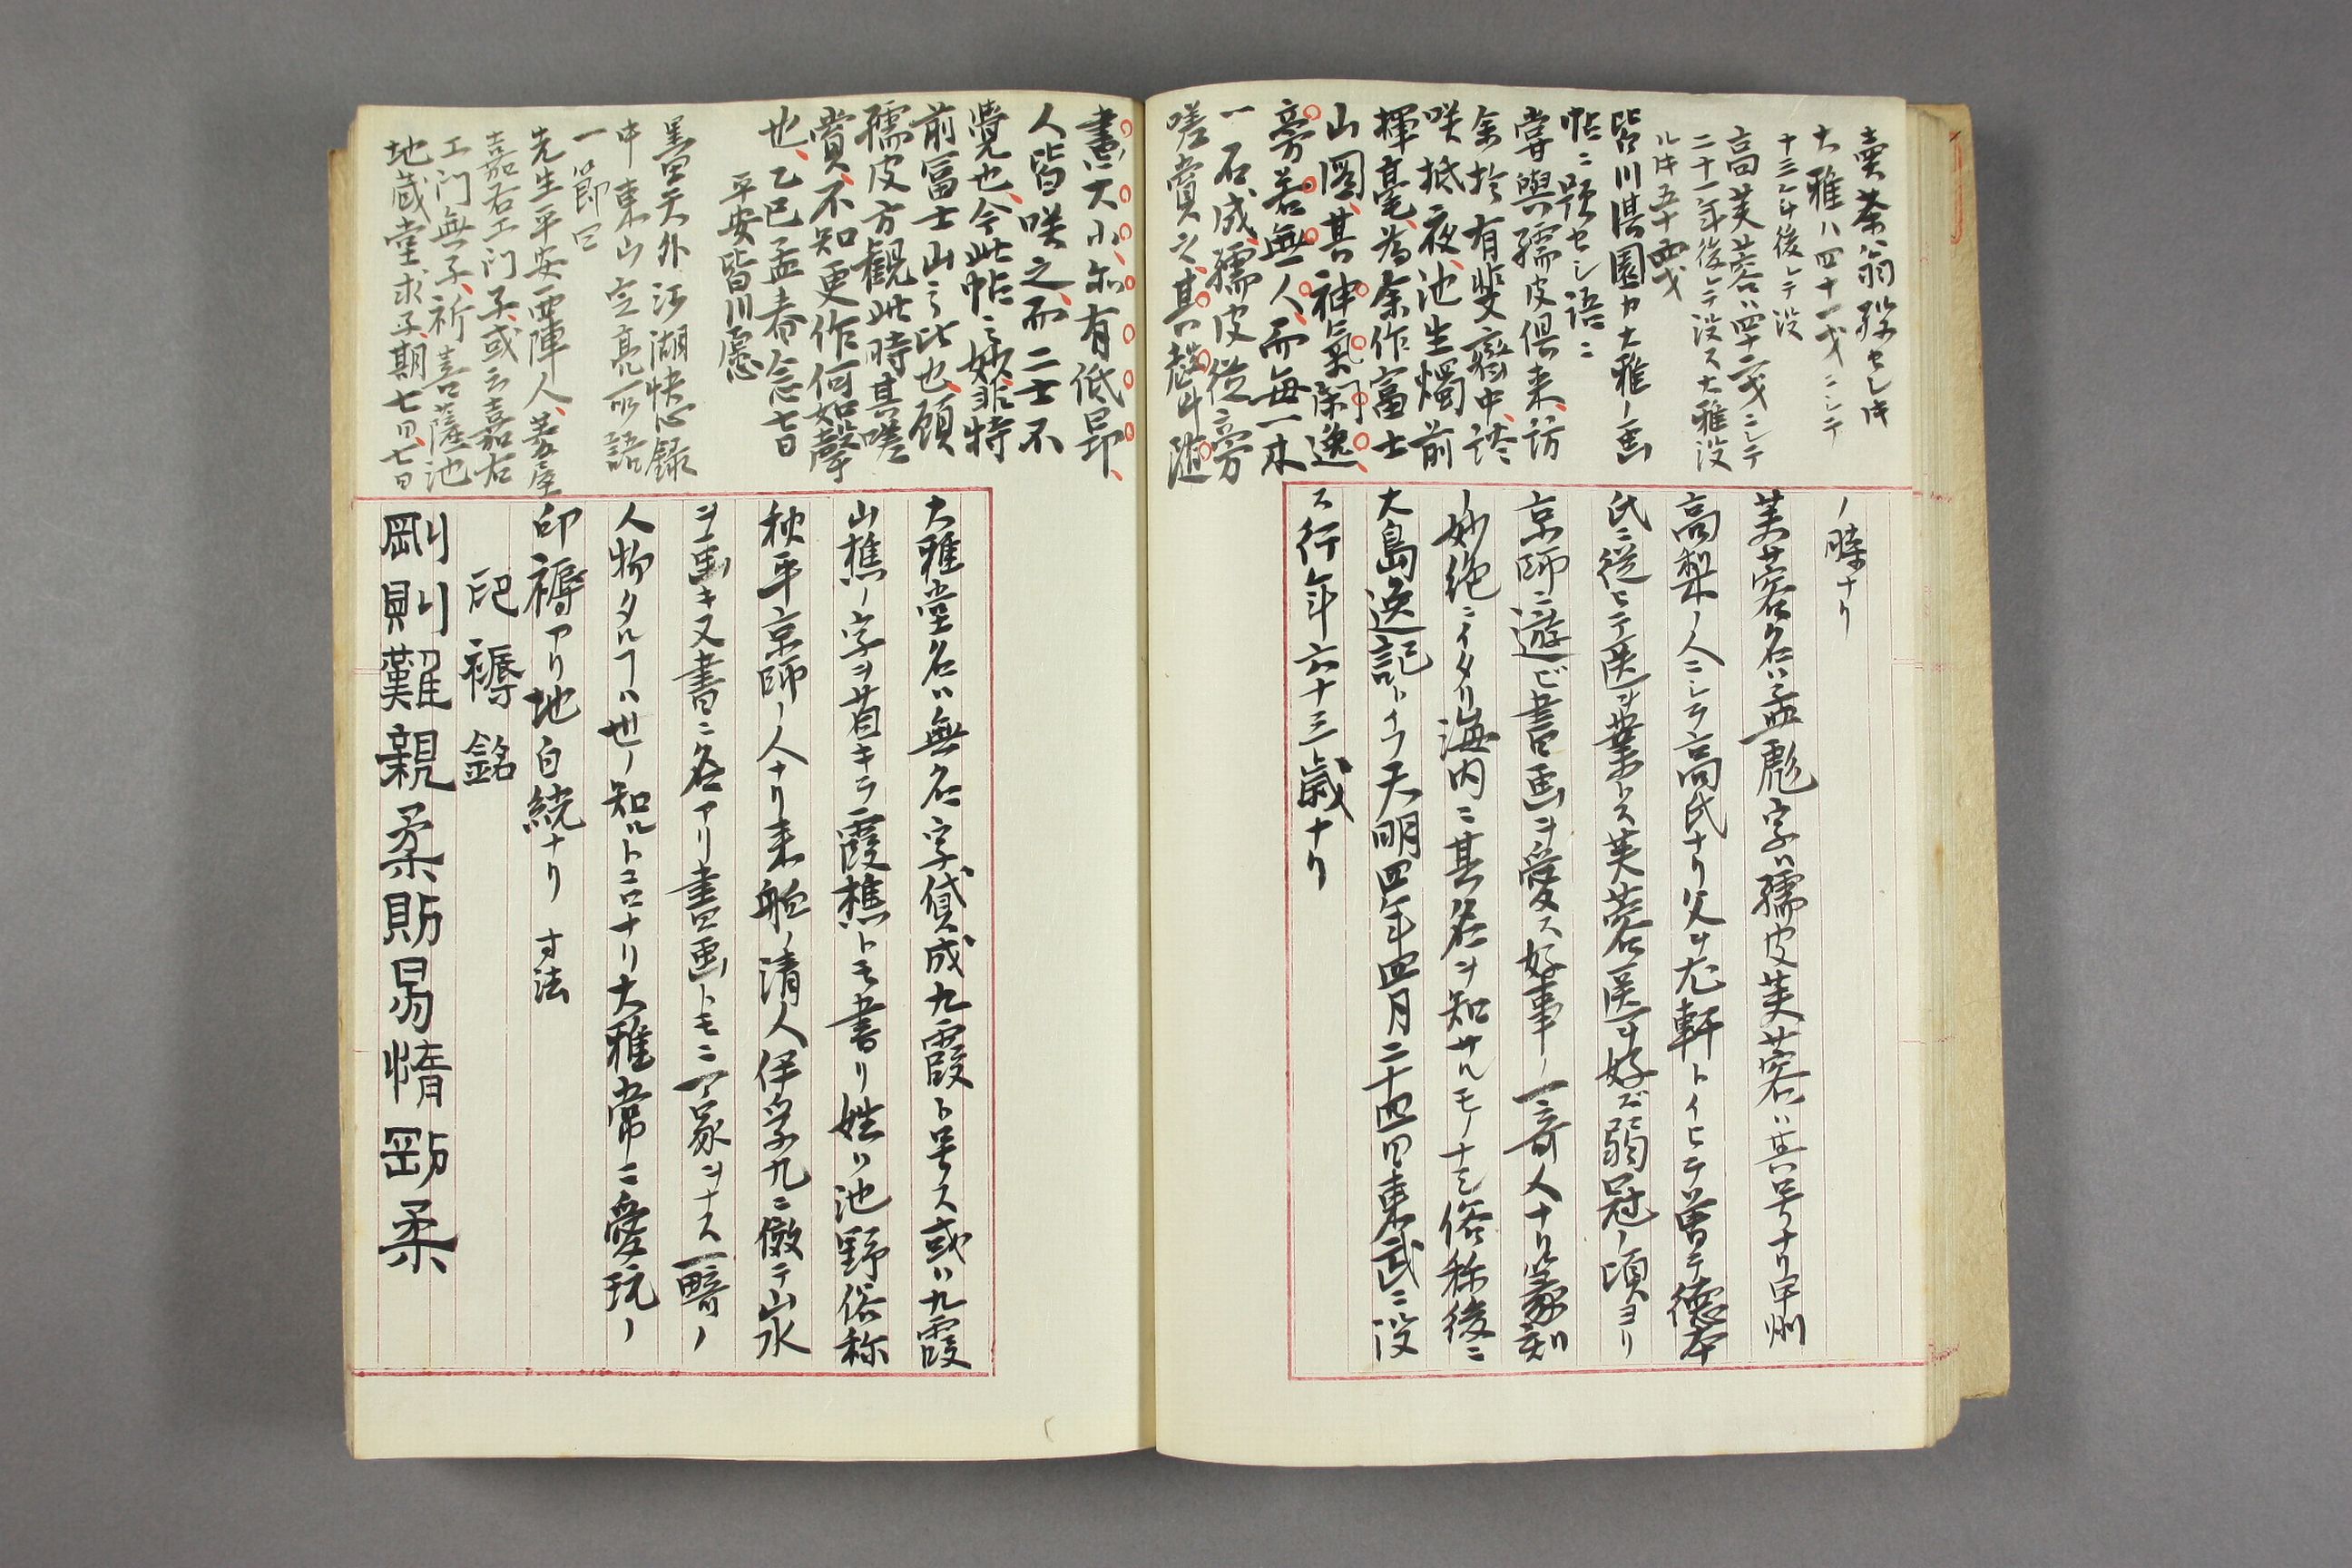 賣茶翁歿セシ片
大雅ハ四十一才ニシテ
十三年後レテ没
高芙蓉ハ四十二才ニシテ
二十一年後レテ没ス大雅没
ル片五十四才
皆川淇園カ大雅ノ画
帖ニ題セシ語ニ
嘗與孺皮倶来、訪
余於有斐齋中、談
咲抵夜、池生燭前
揮毫、為余作富士
山圖、其神氣閑逸
旁若無人、而毎一木
一石成、孺皮從旁
嗟賞之、其聲隨
ノ時ナリ
芙蓉名ハ孟彪字ハ孺皮芙蓉ハ其号ナリ甲州
高梨ノ人ニシテ高氏ナリ父ヲ尤軒トイヒテ曽テ徳本
氏ニ從ヒテ医ヲ業トス芙蓉医ヲ好ズ弱冠ノ頃ヨリ
京師ニ遊ビ書画ヲ愛ス好事ノ一竒人ナリ篆刻
ノ妙絶ニイタリ海内ニ其名ヲ知サルモノナミ俗称後ニ
大島逸記トイフ天明四年四月二十四日東武ニ没
ス行年六十三歳ナリ
畫大小亦有低昂、
人皆咲之、而二士不
覺也、今此帖之妙、非特
前富士山之比也、顧
孺皮方觀此時其嗟
賞、不知更作何如聲
也、乙巳孟春念七日
平安皆川愿
墨天外江湖快心録
中東山空亮所語
一節曰
先生平安西陣人、菱屋
嘉右エ门子、或云嘉右
エ门無子、祈菩薩池
地蔵堂求子、期七日、七日
大雅堂名ハ無名字貸成九霞ト号ス或ハ九霞
山樵ノ字ヲ省キテ霞樵トモ書リ姓ハ池野俗称
秋平京師ノ人ナリ来舶ノ清人伊孚九ニ倣テ山水
ヲ画キ又書ニ名アリ書画トモニ一家ヲナス一畸ノ
人物タルヿハ世ノ知ルトコロナリ大雅常ニ愛玩ノ
印褥アリ地白綾ナリ 寸法
印褥銘
剛則難親柔則易惰剛柔